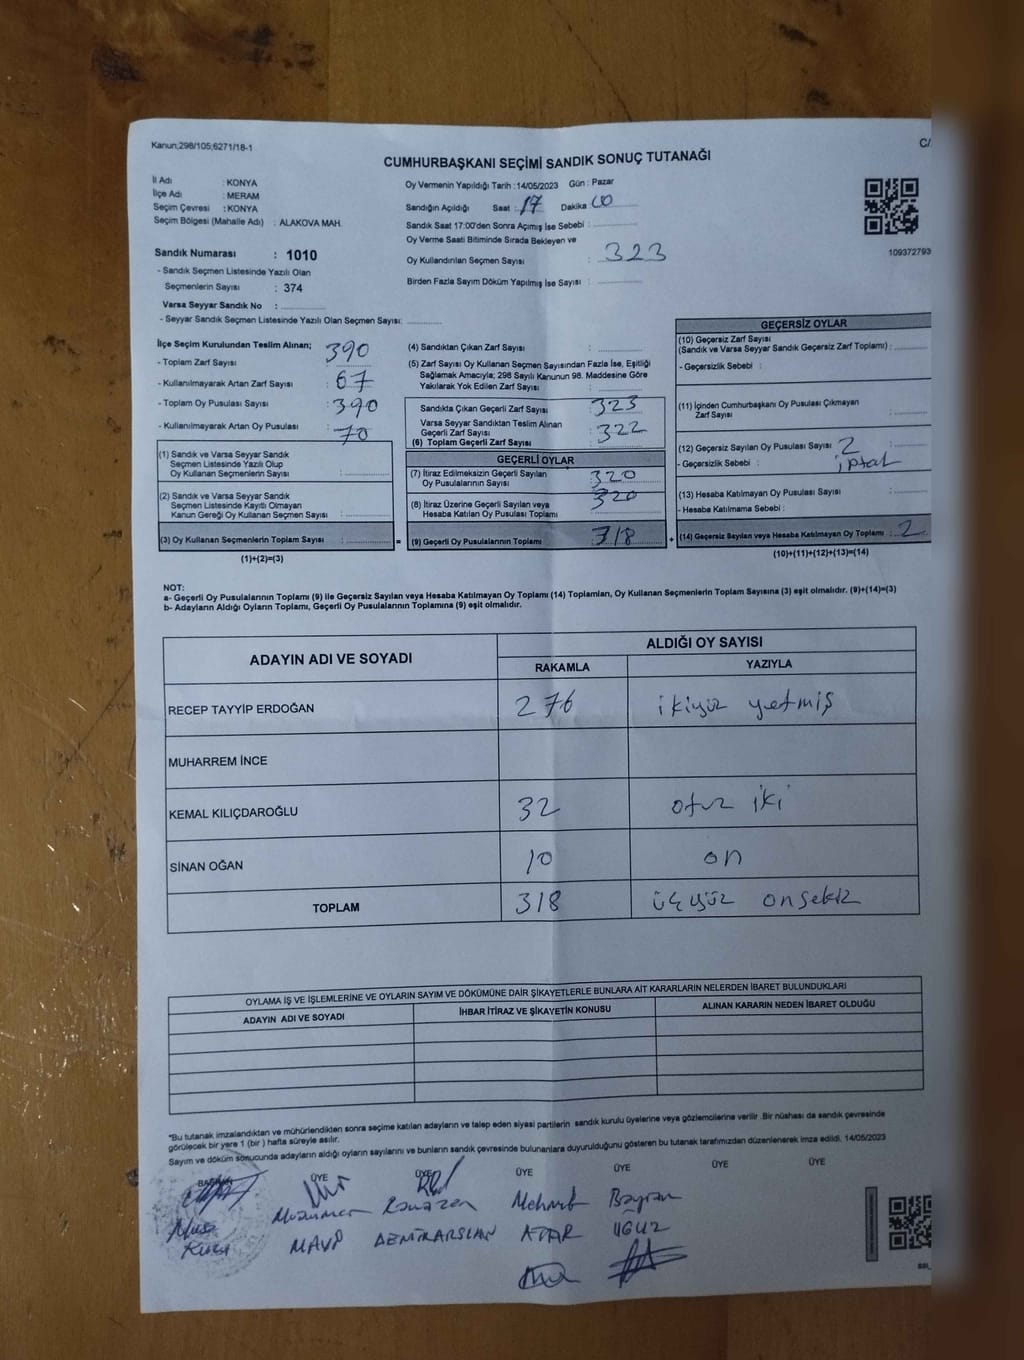 Kanun;298/105;6271/18-1
C/
CUMHURBAŞKANI SEÇİMİ SANDIK SONUÇ TUTANAĞI
İl Adı : KONYA
İlçe Adı : MERAM
Seçim Çevresi : KONYA
Seçim Bölgesi (Mahalle Adı) : ALAKOVA MAH.
Sandık Numarası : 1010
- Sandık Seçmen Listesinde Yazılı Olan
Seçmenlerin Sayısı : 374
Varsa Seyyar Sandık No :
- Seyyar Sandık Seçmen Listesinde Yazılı Olan Seçmen Sayısı:
Oy Vermenin Yapıldığı Tarih : 14/05/2023 Gün : Pazar
Sandığın Açıldığı Saat : 17 Dakika 00
Sandık Saat 17:00'den Sonra Açımış İse Sebebi :
Oy Verme Saati Bitiminde Sırada Bekleyen ve
Oy Kullandırılan Seçmen Sayısı : 323
Birden Fazla Sayım Döküm Yapılmış İse Sayısı :
109372793
İlçe Seçim Kurulundan Teslim Alınan;
- Toplam Zarf Sayısı : 390
- Kullanılmayarak Artan Zarf Sayısı : 67
- Toplam Oy Pusulası Sayısı : 390
- Kullanılmayarak Artan Oy Pusulası : 70
(1) Sandık ve Varsa Seyyar Sandık
Seçmen Listesinde Yazılı Olup
Oy Kullanan Seçmenlerin Sayısı :
(2) Sandık ve Varsa Seyyar Sandık
Seçmen Listesinde Kayıtlı Olmayan
Kanun Gereği Oy Kullanan Seçmen Sayısı :
(3) Oy Kullanan Seçmenlerin Toplam Sayısı :
(1)+(2)=(3)
(4) Sandıktan Çıkan Zarf Sayısı :
(5) Zarf Sayısı Oy Kullanan Seçmen Sayısından Fazla İse, Eşitliği
Sağlamak Amacıyla; 298 Sayılı Kanunun 98. Maddesine Göre
Yakılarak Yok Edilen Zarf Sayısı :
Sandıkta Çıkan Geçerli Zarf Sayısı : 323
Varsa Seyyar Sandıktan Teslim Alınan
Geçerli Zarf Sayısı : 322
(6) Toplam Geçerli Zarf Sayısı
GEÇERLİ OYLAR
(7) İtiraz Edilmeksizin Geçerli Sayılan
Oy Pusulalarının Sayısı : 320
(8) İtiraz Üzerine Geçerli Sayılan veya
Hesaba Katılan Oy Pusulası Toplamı : 320
(9) Geçerli Oy Pusulalarının Toplamı : 318
GEÇERSİZ OYLAR
(10) Geçersiz Zarf Sayısı
(Sandık ve Varsa Seyyar Sandık Geçersiz Zarf Toplamı) :
- Geçersizlik Sebebi :
(11) İçinden Cumhurbaşkanı Oy Pusulası Çıkmayan
Zarf Sayısı :
(12) Geçersiz Sayılan Oy Pusulası Sayısı : 2
- Geçersizlik Sebebi : iptal
(13) Hesaba Katılmayan Oy Pusulası Sayısı :
- Hesaba Katılmama Sebebi :
(14) Geçersiz Sayılan veya Hesaba Katılmayan Oy Toplamı : 2
(10)+(11)+(12)+(13)=(14)
NOT:
a- Geçerli Oy Pusulalarının Toplamı (9) ile Geçersiz Sayılan veya Hesaba Katılmayan Oy Toplamı (14) Toplamları, Oy Kullanan Seçmenlerin Toplam Sayısına (3) eşit olmalıdır. (9)+(14)=(3)
b- Adayların Aldığı Oyların Toplamı, Geçerli Oy Pusulalarının Toplamına (9) eşit olmalıdır.
ADAYIN ADI VE SOYADI
ALDIĞI OY SAYISI
RAKAMLA YAZIYLA
RECEP TAYYİP ERDOĞAN 276 ikiyüz yetmiş
MUHARREM İNCE
KEMAL KILIÇDAROĞLU 32 otuz iki
SİNAN OĞAN 10 on
TOPLAM 318 üçyüz onsekiz
OYLAMA İŞ VE İŞLEMLERİNE VE OYLARIN SAYIM VE DÖKÜMÜNE DAİR ŞİKAYETLERLE BUNLARA AİT KARARLARIN NELERDEN İBARET BULUNDUKLARI
ADAYIN ADI VE SOYADI İHBAR İTİRAZ VE ŞİKAYETİN KONUSU ALINAN KARARIN NEDEN İBARET OLDUĞU
*Bu tutanak imzalandıktan ve mühürlendikten sonra seçime katılan adayların ve talep eden siyasi partilerin sandık kurulu üyelerine veya gözlemcilerine verilir .Bir nüshası da sandık çevresinde
görülecek bir yere 1 (bir ) hafta süreyle asılır.
Sayım ve döküm sonucunda adayların aldığı oyların sayılarını ve bunların sandık çevresinde bulunanlara duyurulduğunu gösteren bu tutanak tarafımızdan düzenlenerek imza edildi. 14/05/2023
BAŞKAN ÜYE ÜYE ÜYE ÜYE ÜYE ÜYE
Musa Muammer Ramazan Mehmet Bayram
MAVİ DEMİRARSLAN ATAR UĞUZ